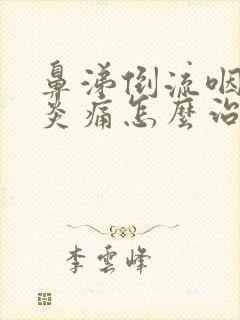 鼻涕倒流咽
炎痛怎麼治
李雲峰